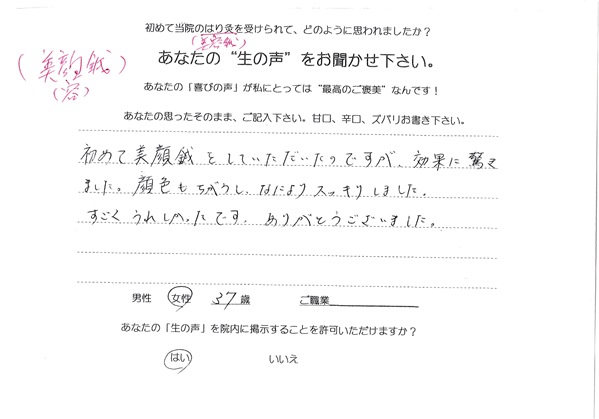 初めて当院のはり灸を受けられて、どのように思われましたか?
(美容鍼)
(美顔鍼)
(容)
あなたの“生の声”をお聞かせ下さい。
あなたの「喜びの声」が私にとっては“最高のご褒美”なんです!
あなたの思ったそのまま、ご記入下さい。甘口、辛口、ズバリお書き下さい。
初めて美顔鍼をしていただいたのですが、効果に驚き
ました。顔色もちがうし、なによりスッキリしました。
すごくうれしかったです。ありがとうございました。
男性 女性 37歳 ご職業
あなたの「生の声」を院内に掲示することを許可いただけますか?
はい いいえ